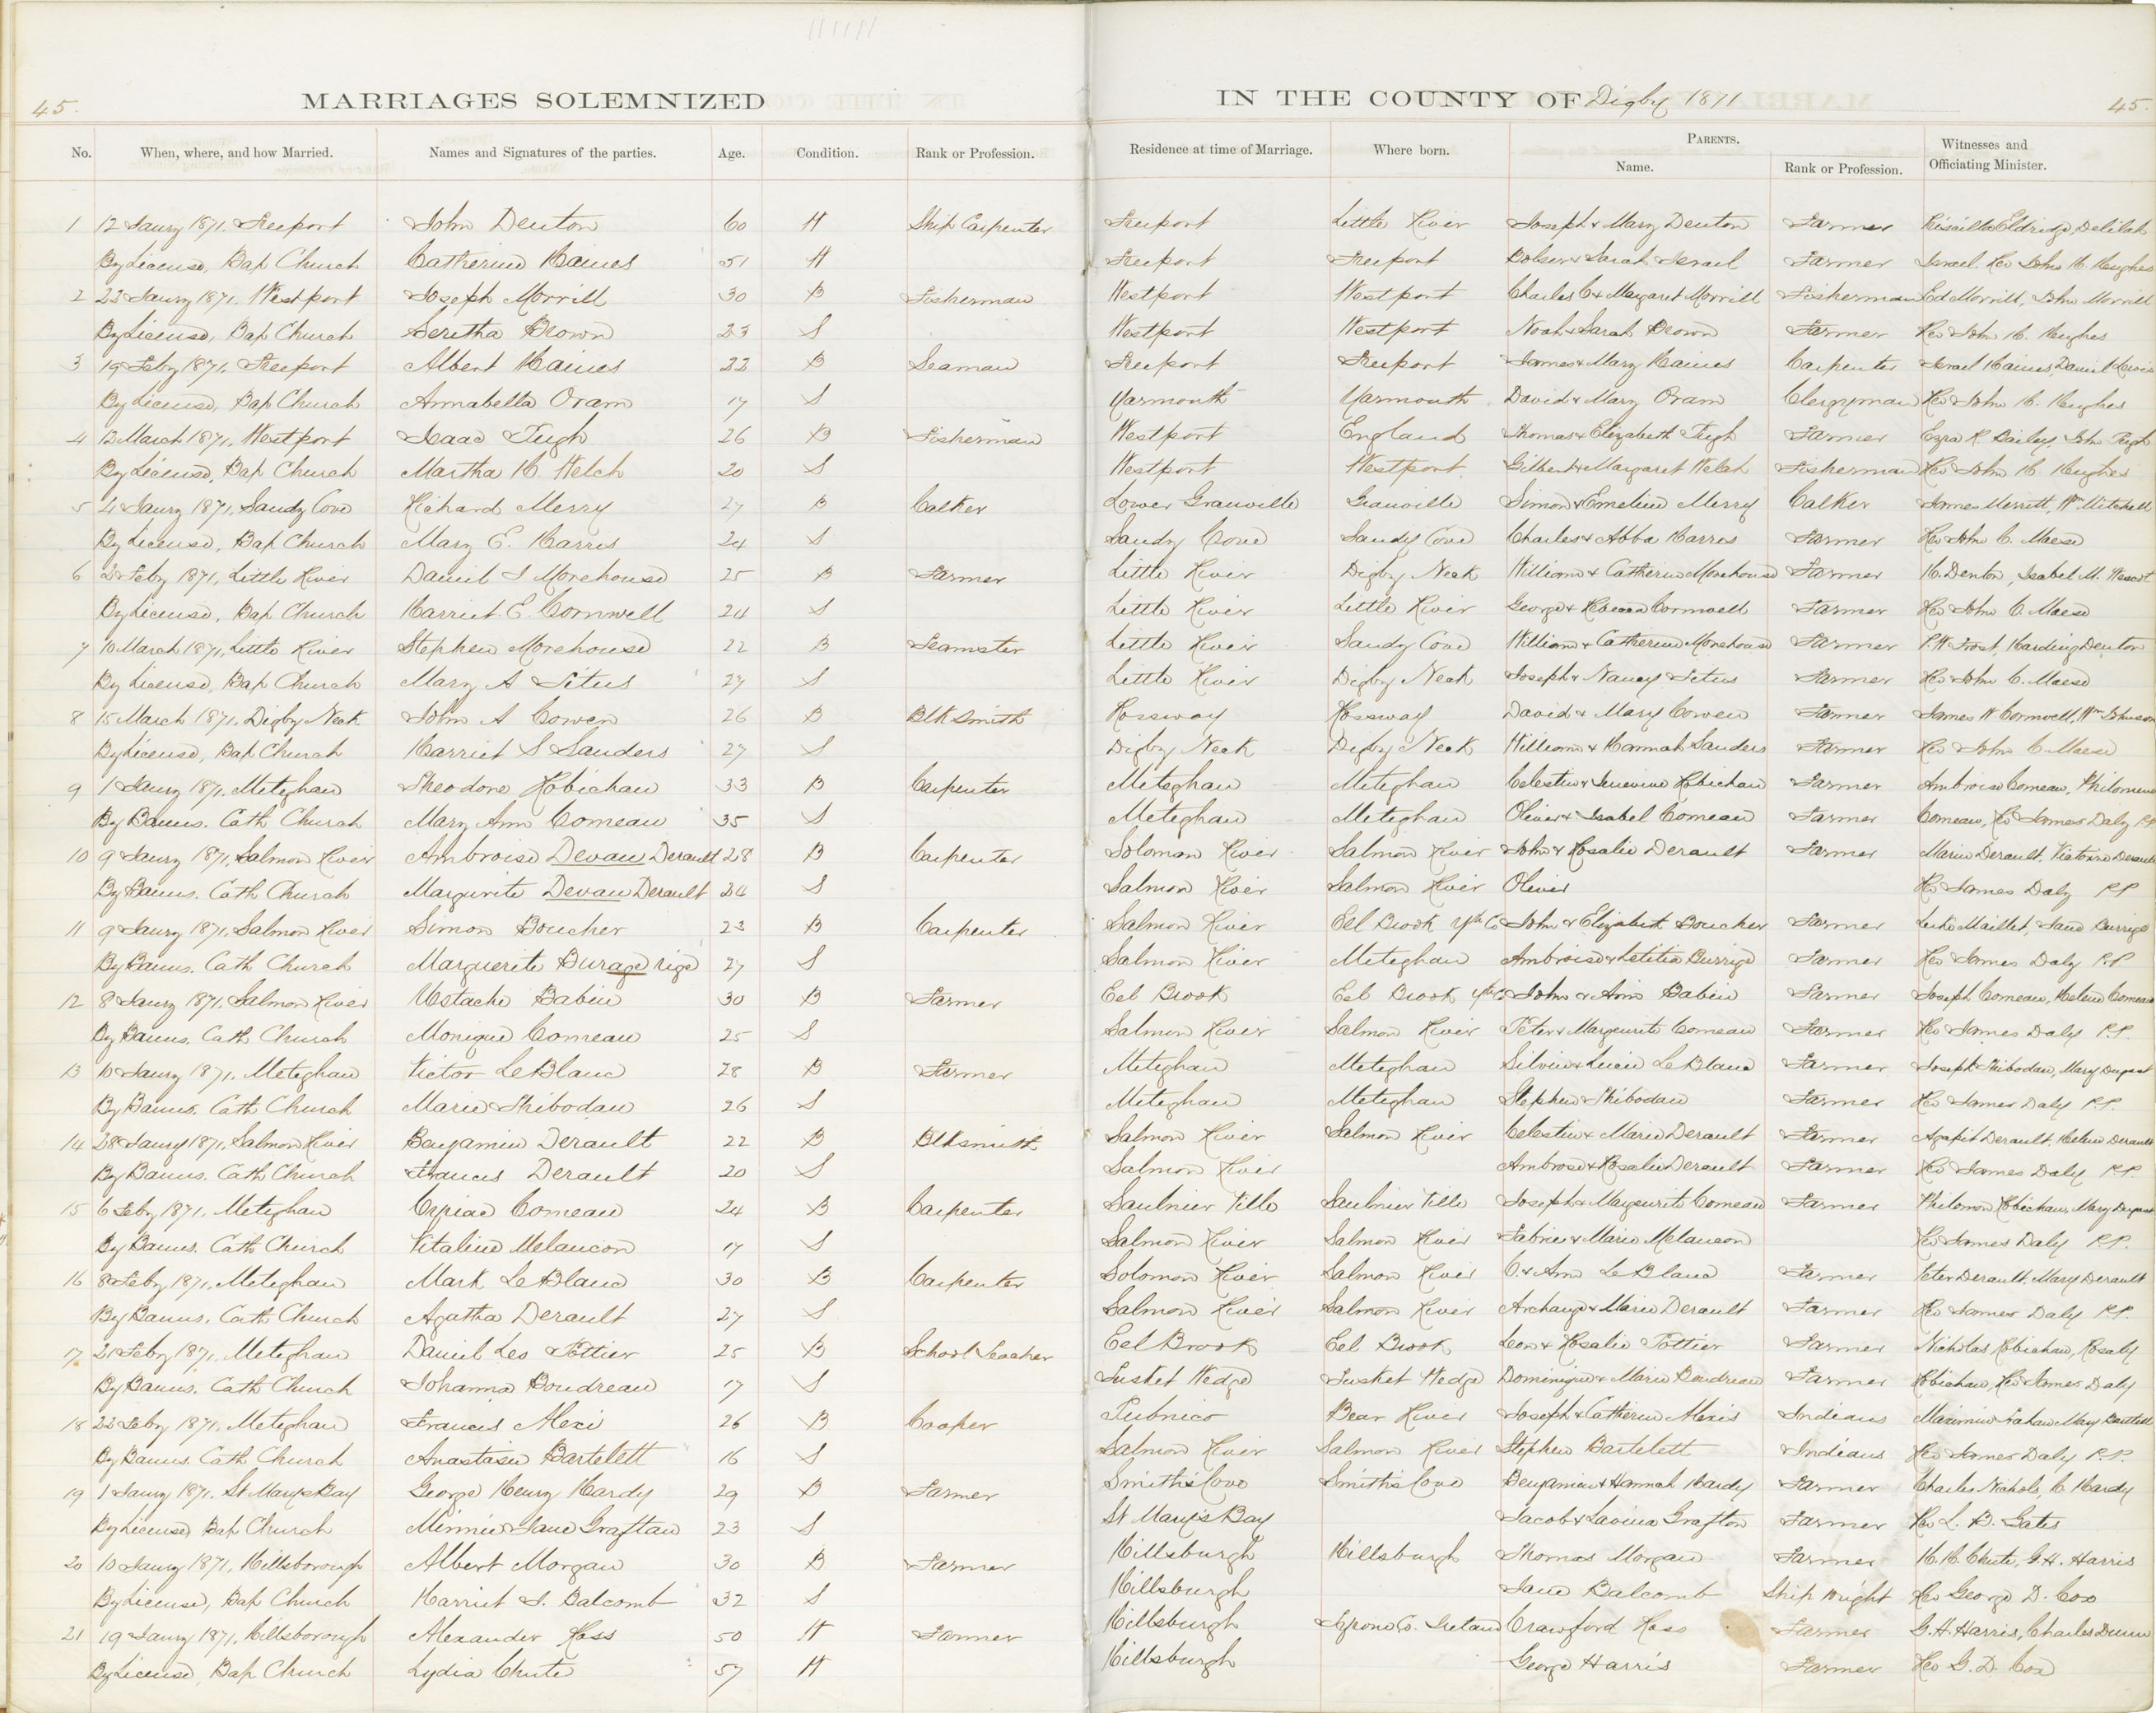 45.
MARRIAGES SOLEMNIZED IN THE COUNTY OF Digby 1871
45.
No. When, where, and how Married. Names and Signatures of the parties. Age. Condition. Rank or Profession. Residence at time of Marriage. Where born. PARENTS. Name. Rank or Profession. Witnesses and Officiating Minister.
1 12 Jaury 1871. Freeport John Denton 60 W Ship Carpenter Freeport Little River Joseph & Mary Denton Farmer Priscilla Eldridge, Delilah
By License, Bap Church Catherine Haines 51 W Freeport Freeport & Sarah Israel Farmer Israel. Rev John H. Hughes
2 22 Jaury 1871. Westport Joseph Morrill 30 B Fisherman Westport Westport Charles C & Margaret Morrill Fisherman Ed Morrill, John Morrill
By License, Bap Church Seretha Brown 23 S Westport Westport Noah & Sarah Brown Farmer Rev John H. Hughes
3 19 Feby 1871, Freeport Albert Haines 22 B Seaman Freeport Freeport James & Mary Haines Carpenter Israel Haines, Daniel Lewis
By License, Bap Church Annabella Oram 17 S Yarmouth Yarmouth David & Mary Oram Clergyman Rev John H. Hughes
4 12 March 1871, Westport Isaac Tugh 26 B Fisherman Westport England Thomas & Elizabeth Tugh Farmer Ezra R Bailey, John Tugh
By License, Bap Church Martha H. Welch 20 S Westport Westport Gilbert & Margaret Welch Fisherman Rev John H. Hughes
5 4 Jaury 1871, Sandy Cove Richard Merry 27 B Calker Lower Granville Granville Simon & Emeline Merry Calker James Merritt, Wm Mitchell
By License, Bap Church Mary E. Harris 24 S Sandy Cove Sandy Cove Charles & Abba Harris Farmer Rev John C. Maese
6 2 Feby 1871, Little River Daniel S Morehouse 25 B Farmer Little River Digby Neck William & Catherine Morehouse Farmer H. Denton, Isabel M. Wescot
By License, Bap Church Harriet E. Cornwell 24 S Little River Little River George & Cornwell Farmer Rev John C. Maese
7 10 March 1871, Little River Stephen Morehouse 22 B Teamster Little River Sandy Cove William & Catherine Morehouse Farmer P. W Frost, Harding Denton
By License, Bap Church Mary A Titus 27 S Little River Digby Neck Joseph & Nancy Titus Farmer Rev John C. Maese
8 15 March 1871, Digby Neck John A Cowen 26 B Blk Smith Rossway Rossway David & Mary Cowen Farmer James W Cornwell, Wm Johnson
By License, Bap Church Harriet S Sanders 27 S Digby Neck Digby Neck William & Hannah Sanders Farmer Rev John C. Maese
9 1 Jaury 1871, Meteghan Theodore Robichau 33 B Carpenter Meteghan Meteghan Celestin & Robichau Farmer Ambroise Comeau, Philomene
By Banns. Cath Church Mary Ann Comeau 35 S Meteghan Meteghan Oliver & Isabel Comeau Farmer Comeau, Rev James Daly P.P.
10 9 Jaury 1871, Salmon River Ambroise Devau Derault 28 B Carpenter Soloman River Salmon River John & Rosalie Derault Farmer Marie Derault, Victoire Derault
By Banns. Cath Church Margurite Devau Derault 24 S Salmon River Salmon River Oliver Rev James Daly P.P.
11 9 Jaury 1871, Salmon River Simon Boucher 23 B Carpenter Salmon River Eel Brook Yth Co John & Elizabeth Boucher Farmer Luke Maillet, Jane Burrige
By Banns. Cath Church Marguerite Burage rige 27 S Salmon River Meteghan Ambroise & Letitia Burrige Farmer Rev James Daly P.P.
12 8 Jaury 1871, Salmon River Ustache Babin 30 B Farmer Eel Brook Eel Brook Yth Co John & Ann Babin Farmer Joseph Comeau, Helen Comeau
By Banns. Cath Church Monique Comeau 25 S Salmon River Salmon River Peter & Margurite Comeau Farmer Rev James Daly P.P.
13 10 Jaury 1871, Meteghan Victor LeBlanc 28 B Farmer Meteghan Meteghan Silvin & LeBlanc Farmer Joseph Thibodau, Mary Dugast
By Banns. Cath Church Marie Thibodau 26 S Meteghan Meteghan Stephen Thibodau Farmer Rev James Daly P.P.
14 28 Jaury 1871, Salmon River Benjamin Derault 22 B Blksmith Salmon River Salmon River Celestin & Marie Derault Farmer Agapit Derault, Helen Derault
By Banns. Cath Church Frances Derault 20 S Salmon River Ambrose & Rosalie Derault Farmer Rev James Daly P.P.
15 6 Feby 1871, Meteghan Cyriac Comeau 24 B Carpenter Saulnier Ville Saulnier Ville Joseph & Margurite Comeau Farmer Philomon Robichau, Mary Dugast
By Banns. Cath Church Vitaline Melancon 17 S Salmon River Salmon River Fabrien & Marie Melancon Rev James Daly P.P.
16 8 Feby 1871, Meteghan Mark LeBlanc 30 B Carpenter Solomon River Salmon River C. & Ann LeBlanc Farmer Peter Derault, Mary Derault
By Banns. Cath Church Agatha Derault 27 S Salmon River Salmon River Archange & Marie Derault Farmer Rev James Daly P.P.
17 21 Feby 1871, Meteghan Daniel Leo Pottier 25 B School Teacher Eel Brook Eel Brook Leon & Rosalie Pottier Farmer Nicholas Robichau, Rosaly
By Banns. Cath Church Johanna Boudreau 17 S Tusket Wedge Tusket Wedge Dominique & Marie Boudreau Farmer Robichau, Rev James Daly
18 22 Feby 1871, Meteghan Francis Alexi 26 B Cooper Pubnico Bear River Joseph & Catherine Alexis Indians Maximin Mary Bartlett
By Banns. Cath Church Anastasie Bartelett 16 S Salmon River Salmon River Stephen Bartelett Indians Rev James Daly P.P.
19 1 Jaury 1871. St Marys Bay George Henry Hardy 29 B Farmer Smith's Cove Smith's Cove Benjamin & Hannah Hardy Farmer Charles Nichols, C. Hardy
By License, Bap Church Minnie Jane Graftan 23 S St Marys Bay Jacob & Lavina Grafton Farmer Rev L. B. Gates
20 10 Jaury 1871, Hillsborough Albert Morgan 30 B Farmer Hillsburgh Hillsburgh Thomas Morgan Farmer H. H. Chute, G.H. Harris
By License, Bap Church Harriet S. Balcomb 32 S Hillsburgh Jane Balcomb Ship Wright Rev George D. Cox
21 19 Jaury 1871, Hillsborough Alexander Ross 50 W Farmer Hillsburgh Tyrone Co. Ireland Crawford Ross Farmer G. H. Harris, Charles Dunn
By License, Bap Church Lydia Chute 57 W Hillsburgh George Harris Farmer Rev G. D. Cox